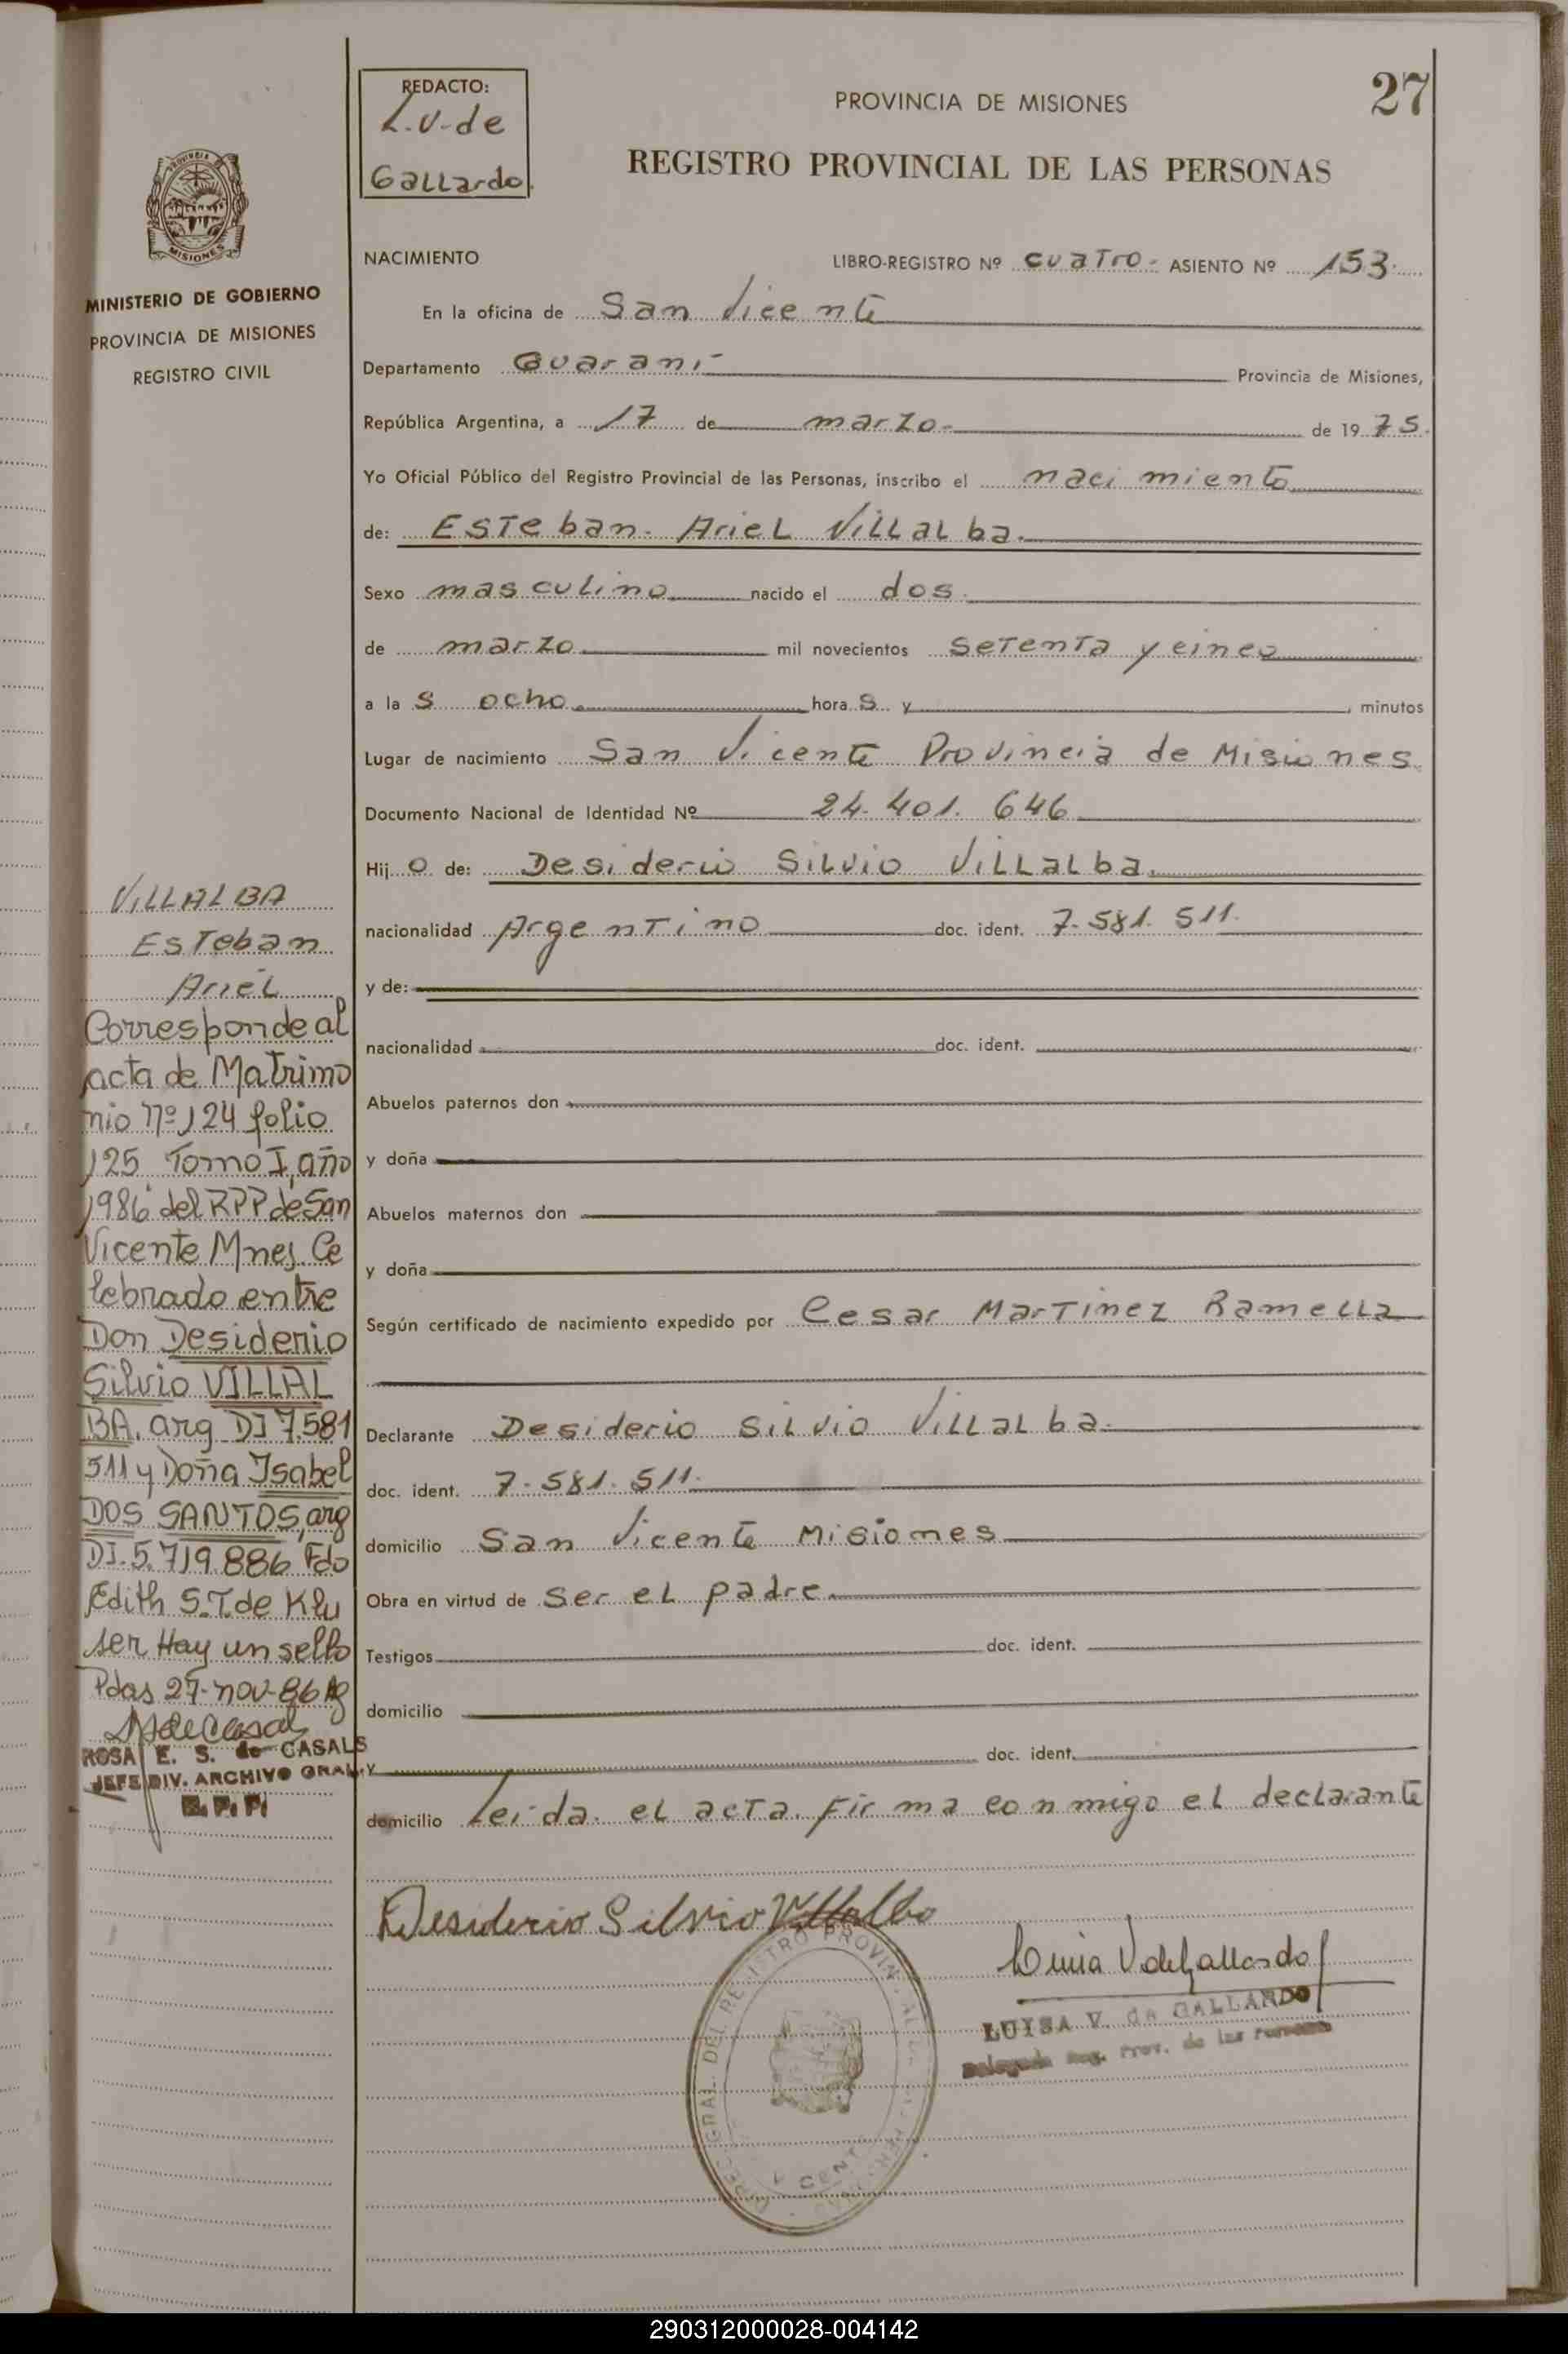 27
REDACTO:
L.V. de
Gallardo.
PROVINCIA DE MISIONES
REGISTRO PROVINCIAL DE LAS PERSONAS
MISIONES
MINISTERIO DE GOBIERNO
PROVINCIA DE MISIONES
REGISTRO CIVIL
NACIMIENTO LIBRO-REGISTRO Nº cuatro- ASIENTO Nº 153.
En la oficina de San Vicente
Departamento Guaraní Provincia de Misiones,
República Argentina, a 17 de marzo- de 1975.
Yo Oficial Público del Registro Provincial de las Personas, inscribo el nacimiento
de: Esteban Ariel Villalba.
Sexo masculino nacido el dos
de marzo mil novecientos setenta y cinco
a las ocho horas y , minutos
Lugar de nacimiento San Vicente Provincia de Misiones
Documento Nacional de Identidad Nº 24.401.646
Hijo de: Desiderio Silvio Villalba.
nacionalidad Argentino doc. ident. 7.581.511.
y de:
nacionalidad doc. ident.
Abuelos paternos don
y doña
Abuelos maternos don
y doña
Según certificado de nacimiento expedido por Cesar Martinez Ramella
Declarante Desiderio Silvio Villalba.
doc. ident. 7.581.511.
domicilio San Vicente Misiones
Obra en virtud de ser el padre.
Testigos doc. ident.
domicilio
y doc. ident.
domicilio Leida el acta firma conmigo el declarante
Desiderio Silvio Villalba
LUISA V. de GALLARDO
Delegada Reg. Prov. de las Personas
VILLALBA
Esteban
Ariel
Corresponde al
acta de Matrimo
nio Nº 124 folio
125 Tomo I, año
1986 del RPP de San
Vicente Mnes. Ce
lebrado entre
Don Desiderio
Silvio VILLAL
BA, arg DI 7.581
511 y Doña Isabel
DOS SANTOS, arg
DI. 5.719.886 Fdo
Edith S.T. de Klu
ser Hay un sello
Pdas 27-nov-86
ROSA E. S. de CASALS
JEFE DIV. ARCHIVO GRAL.
R. P. P.
290312000028-004142